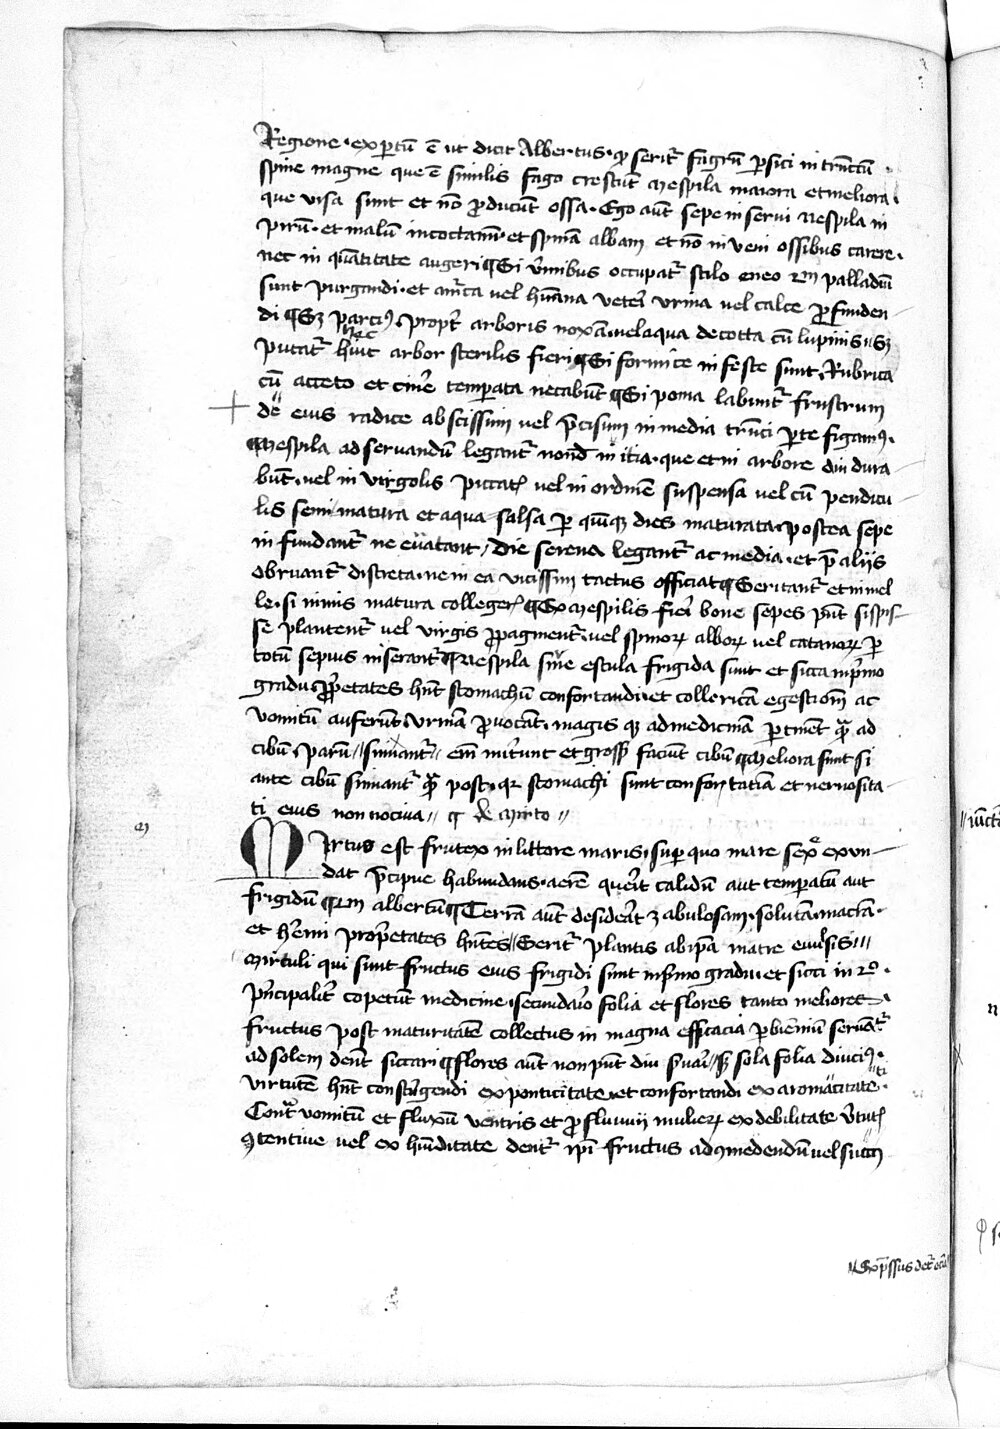 Regione · expertū ē ut dicit Albertus · ꝙ seritr̃ fagrū ꝑsici in trūcū
spine magne que ē similis fago crescūt mespila maiora et meliora ·
que visa sunt et nō ꝓducūt ossa · Ego aūt sepe inserui nespila in
pirū · et malū incoctanū · et spinā albam et nō inveni ossibus carere ·
nec in quātitate augeri ¶ Si v̄mibus occupatr̃ stilo eneo 2m palladiū
sunt purgandi · et amca vel hūana veteri vrina vel calce ꝓfunden-
di ¶ Sꝫ parciꝰ · propt̄ arboris noxā · vel aqua decocta cū lupinis · Sꝫ
putatr̃ hinc arbor sterilis fieri ¶ Si formice infeste sunt · Rubrica
cū aceto et cinē temperata necabūt ¶ Si poma labuntr̃ frustrum
de eius radice abscissum vel p̄cisum in media trūci ꝑte figamꝰ ·
¶ Mespila ad servandū legantr̃ nond̄ mitia · que et in arbore diu dura-
būt · vel in virgolis piccatꝭ vel in ordinē suspensa vel cū pendicu-
lis semimatura et aqua salsa ꝑ quīqꝫ dies maturata · postea sepe
infundantr̃ ne evatant / Die serena legantr̃ ac media · et p̄ aliis
obruantr̃ discreta · ne in ea vicissim tactus officiat ¶ Servantr̃ et in mel-
le · si nimis matura collegerꝭ ¶ Ex mespilis fieri bone sepes pn̄t si spis-
se plantentr̃ vel virgis ꝓpagnentr̃ · vel spinoꝝ alboꝝ vel catanoꝝ ꝑ
totū sepius inserantr̃ ¶ Nespila sive escula frigida sunt et sicca in p̄mo
gradu · ꝓprietates hn̄t stomachū confortandi · et collericā egestionē ac
vomitū auferūt · vrinā ꝓvocāt · magis qꝫ ad medicinā ꝑtinēt qͣ̄ ad
cibū · parū // sumantr̃ // em̄ nutriunt et grossū faciūt cibū ¶ Meliora sunt si
ante cibū sumantr̃ qͣ̄ post · qꝛ stomachi sunt confortatiā et nervosita-
ti eius non nociva // ¶ de Mirto //
M
Mirtus est frutex in littore maris · super quo mare sepe exun-
dat p̄cipue habundans · aerē querit calidū aut temperatū aut
frigidū ¶ 2m albertū ¶ Terrā aūt desiderat zabulosam · solutā · macrā ·
et hermi proprietates hn̄tes // Seritr̃ plantis ab ipā matre evulsis //
Mirtuli qui sunt fructus eius frigidi sunt in p̄mo gradu · et sicci in 2º ·
p̄ncipalitr̃ copetūt medicine · secundario folia et flores tanto meliores ·
fructus post maturitatē collectus in magna efficacia ꝑ bienniū servatr̃
ad solem dent̄ siccari ¶ flores aūt non pn̄t diu s̄vari // sꝫ sola folia diuciꝰ ·
virtutē hn̄t constringendi ex ponticitate · et confortandi ex aromaticitate ·
Contra vomitū et fluxū ventris et ꝓfluvium mulieꝝ ex debilitate v̄tutꝭ
ꝯtentive vel ex hūiditate dentr̃ ipi fructus ad ꝯmedendū vel succꝰ
// Expressus detr̃